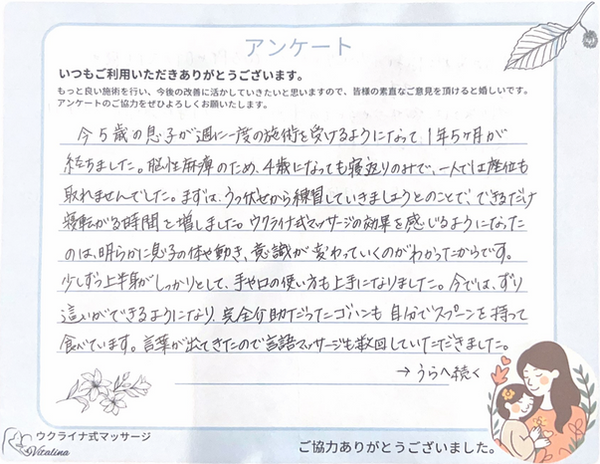 アンケート
いつもご利用いただきありがとうございます。
もっと良い施術を行い、今後の改善に活かしていきたいと思いますので、皆様の素直なご意見を頂けると嬉しいです。
アンケートのご協力をぜひよろしくお願いたします。
今5歳の息子が週に一度の施術を受けるようになって、1年5ヶ月が
経ちました。脳性麻痺のため、4歳になっても寝返りのみで、一人では座位も
取れませんでした。まずは、うつ伏せから練習していきましょうとのことで、できるだけ
寝転がる時間を増しました。ウクライナ式マッサージの効果を感じるようになった
のは、明らかに息子の体や動き、意識が変わっていくのがわかったからです。
少しずつ上半身がしっかりとして、手や口の使い方も上手になりました。今では、ずり
這いができるようになり、完全介助だったゴハンも自分でスプーンを持って
食べています。言葉が出てきたので言語マッサージも数回していただきました。
→うらへ続く
ウクライナ式マッサージ
Vitalina
ご協力ありがとうございました。